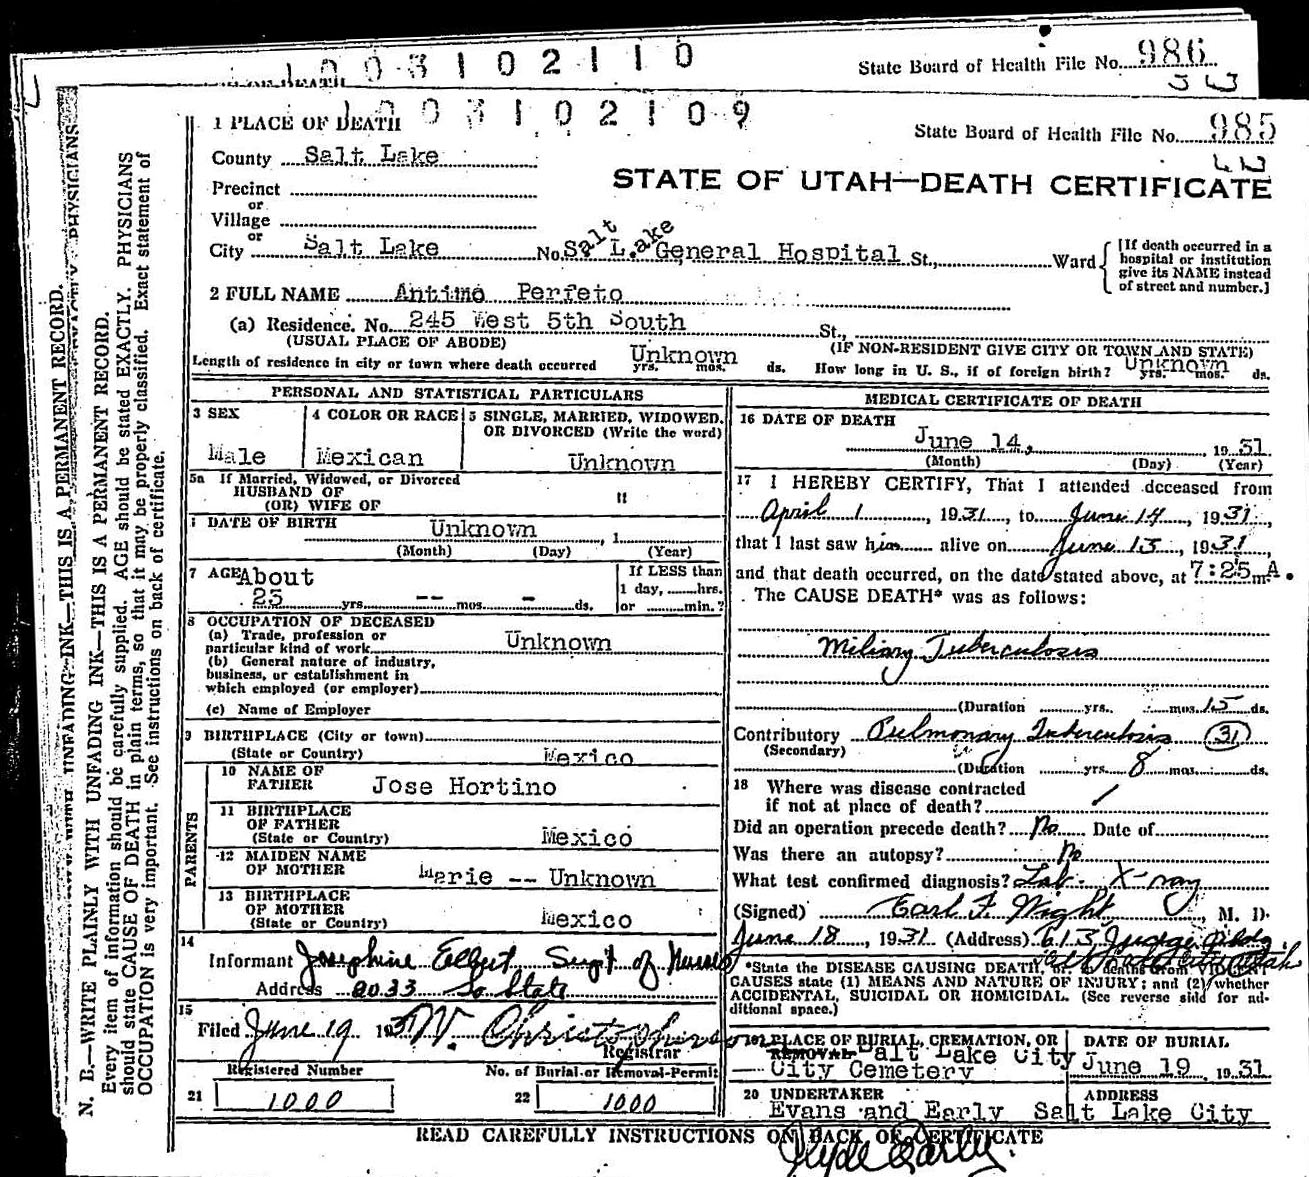 1003102110
State Board of Health File No. 986
1003102109
1 PLACE OF DEATH
State Board of Health File No. 985
County Salt Lake
STATE OF UTAH—DEATH CERTIFICATE
Precinct
or
Village
or
City Salt Lake No. Salt Lake General Hospital St., Ward
[If death occurred in a hospital or institution give its NAME instead of street and number.]
2 FULL NAME Antimo Perfeto
(a) Residence. No. 245 West 5th South St.,
(USUAL PLACE OF ABODE) (IF NON-RESIDENT GIVE CITY OR TOWN AND STATE)
Length of residence in city or town where death occurred Unknown yrs. mos. ds. How long in U. S., if of foreign birth? Unknown yrs. mos. ds.
PERSONAL AND STATISTICAL PARTICULARS
3 SEX
Male
4 COLOR OR RACE
Mexican
5 SINGLE, MARRIED, WIDOWED, OR DIVORCED (Write the word)
Unknown
5a If Married, Widowed, or Divorced
HUSBAND OF
(OR) WIFE OF "
DATE OF BIRTH Unknown , 1
(Month) (Day) (Year)
7 AGE About
25 yrs. -- mos. - ds.
If LESS than
1 day, hrs.
or min.?
8 OCCUPATION OF DECEASED
(a) Trade, profession or
particular kind of work Unknown
(b) General nature of industry,
business, or establishment in
which employed (or employer)
(c) Name of Employer
9 BIRTHPLACE (City or town)
(State or Country) Mexico
PARENTS
10 NAME OF FATHER Jose Hortino
11 BIRTHPLACE OF FATHER
(State or Country) Mexico
12 MAIDEN NAME OF MOTHER Marie -- Unknown
13 BIRTHPLACE OF MOTHER
(State or Country) Mexico
14
Informant Josephine Egbert Supt of Nurses
Address 2033 So State
15
Filed June 19 1931 W. Christopherson
Registrar
Registered Number
21 1000
No. of Burial or Removal Permit
22 1000
MEDICAL CERTIFICATE OF DEATH
16 DATE OF DEATH
June 14, 1931
(Month) (Day) (Year)
17 I HEREBY CERTIFY, That I attended deceased from
April 1, 1931, to June 14, 1931,
that I last saw him alive on June 13, 1931,
and that death occurred, on the date stated above, at 7:25 m A.
The CAUSE DEATH* was as follows:
Miliary Tuberculosis
(Duration yrs. mos. 15 ds.
Contributory Pulmonary Tuberculosis 31
(Secondary)
(Duration yrs. 8 mos. ds.
18 Where was disease contracted
if not at place of death?
Did an operation precede death? No Date of
Was there an autopsy? No
What test confirmed diagnosis? Lab. X-ray
(Signed) Earl F. Wight, M. D.
June 18, 1931 (Address) 613 Judge Bldg.
Salt Lake City Utah
*State the DISEASE CAUSING DEATH, or, in deaths from VIOLENT
CAUSES state (1) MEANS AND NATURE OF INJURY; and (2) whether
ACCIDENTAL, SUICIDAL OR HOMICIDAL. (See reverse side for additional space.)
19 PLACE OF BURIAL, CREMATION, OR
REMOVAL Salt Lake City
City Cemetery
DATE OF BURIAL
June 19 1931
20 UNDERTAKER
Evans and Early
ADDRESS
Salt Lake City
READ CAREFULLY INSTRUCTIONS ON BACK OF CERTIFICATE
Clyde Early.
N. B.—WRITE PLAINLY WITH UNFADING INK—THIS IS A PERMANENT RECORD.
Every item of information should be carefully supplied. AGE should be stated EXACTLY. PHYSICIANS
should state CAUSE OF DEATH in plain terms, so that it may be properly classified. Exact statement of
OCCUPATION is very important. See instructions on back of certificate.